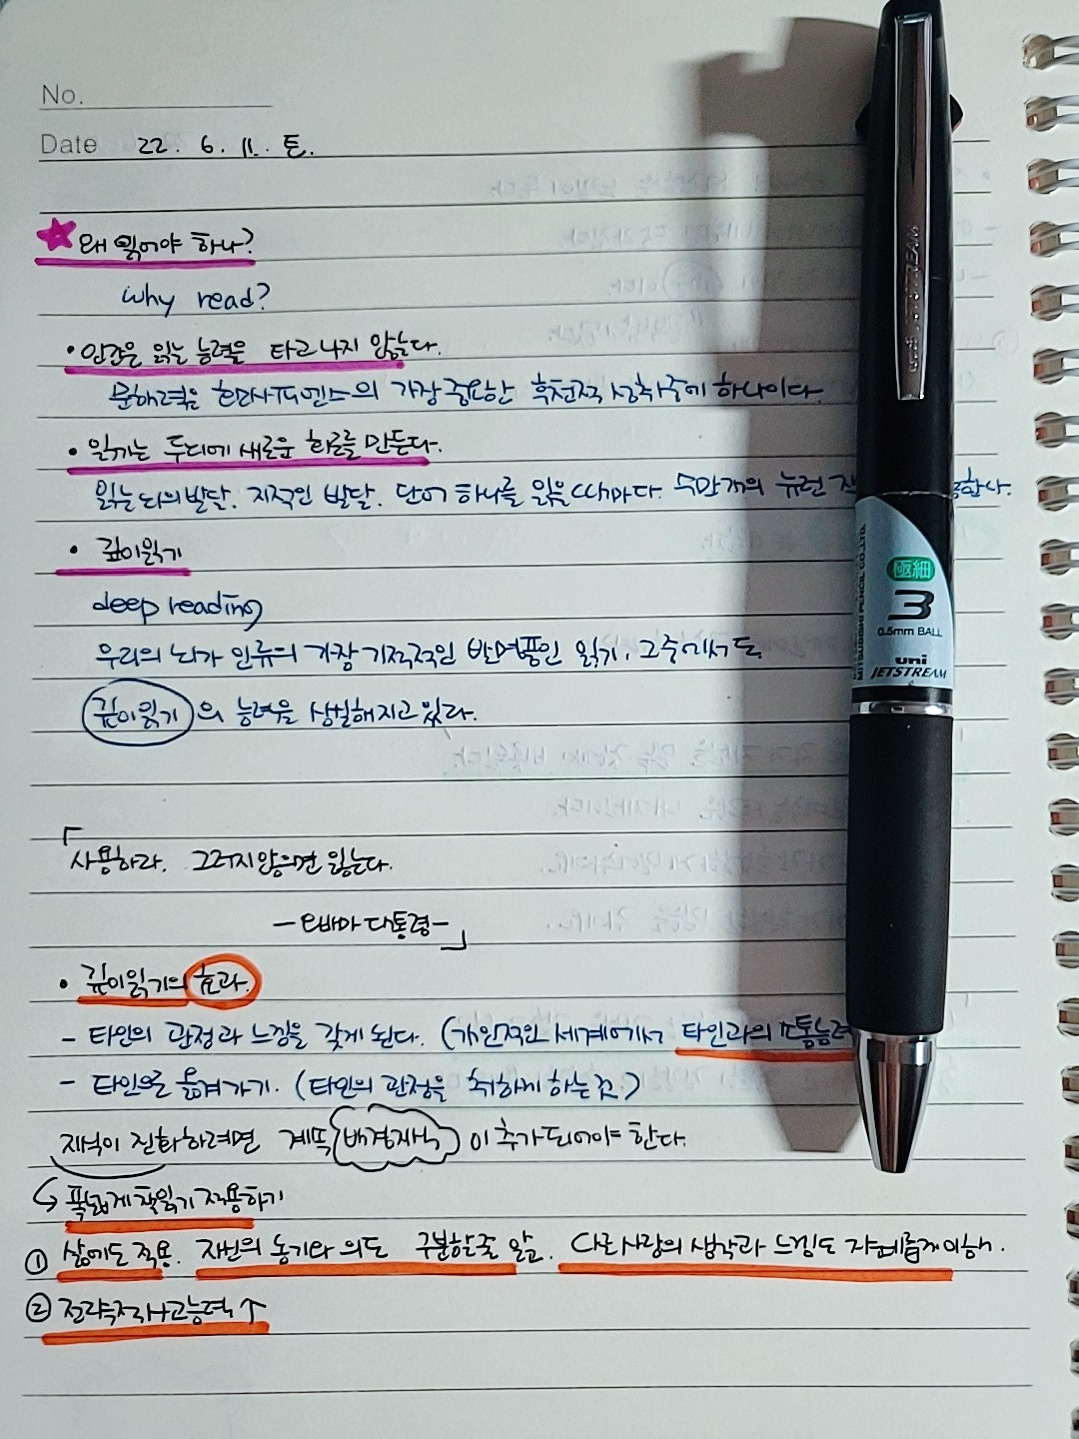 No.
Date 22. 6. 11. 토.
왜 읽어야 하나?
Why read?
• 인간은 읽는 능력을 타고 나지 않는다.
문해력은 호모사피엔스의 가장 중요한 후천적 성취중에 하나이다.
• 읽기는 두뇌에 새로운 회로를 만든다.
읽는 뇌의 발달. 지적인 발달. 단어 하나를 읽을때마다. 수만개의 뉴런
• 깊이읽기
deep reading
우리의 뇌가 인류의 가장 기적적인 발명품인 읽기, 그중에서도
깊이읽기의 능력을 상실해지고 있다.
「사용하라. 그러지않으면 잃는다.
- 오바마 대통령 -」
• 깊이읽기의 효과.
- 타인의 관점과 느낌을 갖게 된다. (개인적인 세계에서 타인과의 소통능력
- 타인으로 옮겨가기. (타인의 관점을 취하게 하는 것)
지식이 진화하려면 계속 배경지식이 추가되어야 한다.
↳ 폭넓게 책읽기 적용하기
① 삶에도 적용. 자신의 동기와 의도 구분할줄 알고. 다른사람의 생각과 느낌도 지혜롭게 이해.
② 전략적사고능력↑
極細
3
0.5mm BALL
uni
JETSTREAM
MITSUBISHI PENCIL CO.,LTD.
uni JETSTREAM